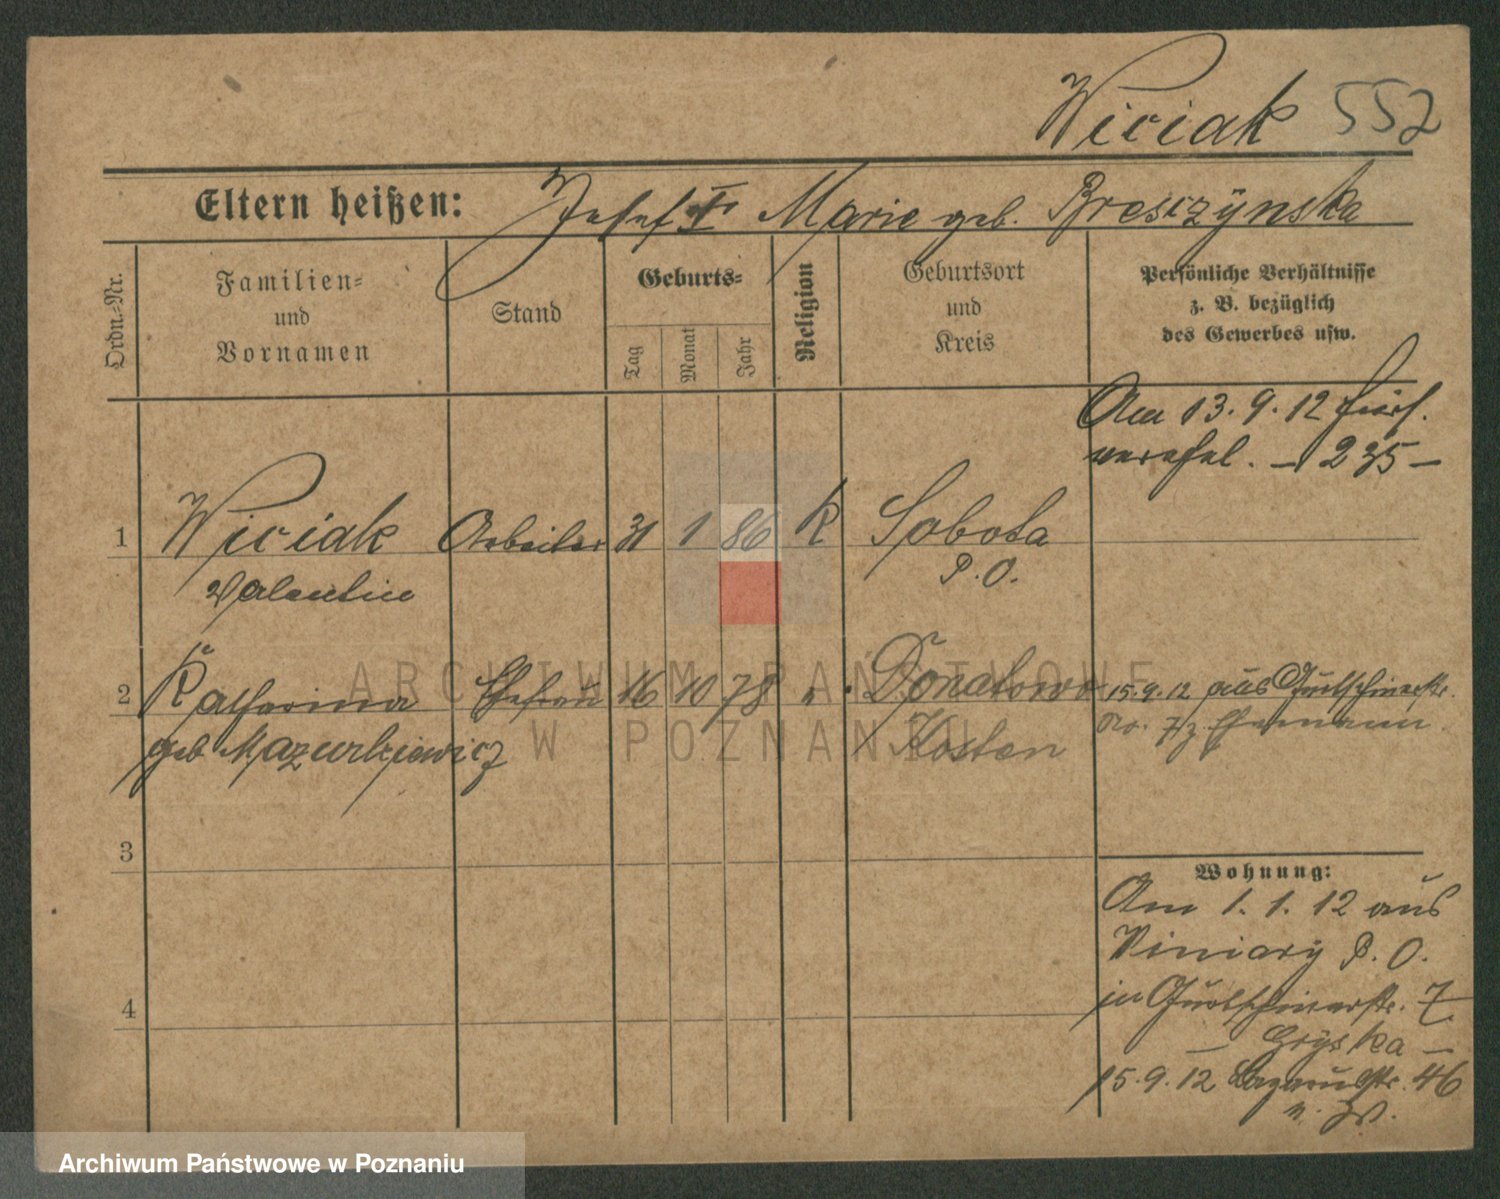 Wiciak 552
Eltern heißen: Josef I Marie geb. Bresczÿnska
Ordn.-Nr.
Familien-
und
Vornamen
Stand
Geburts-
Tag
Monat
Jahr
Religion
Geburtsort
und
Kreis
Persönliche Verhältnisse
z. B. bezüglich
des Gewerbes usw.
Am 13.9.12
verehel. – 235 –
1 Wiciak Arbeiter 31 1 86 K Sobota
Valentin P. O.
2 Katharina Ehefrau 16 10 78 " Donatowo 15.9.12 aus Gurtschinerstr.
geb Mazurkiewicz Kosten No. 7 z. Ehemann.
3
4
Wohnung:
Am 1. 1. 12 aus
Winiary P. O.
in Gurtschinerstr. 7.
Gryska –
15.9.12 Lazarusstr. 46
ARCHIWUM PAŃSTWOWE
W POZNANIU
Archiwum Państwowe w Poznaniu